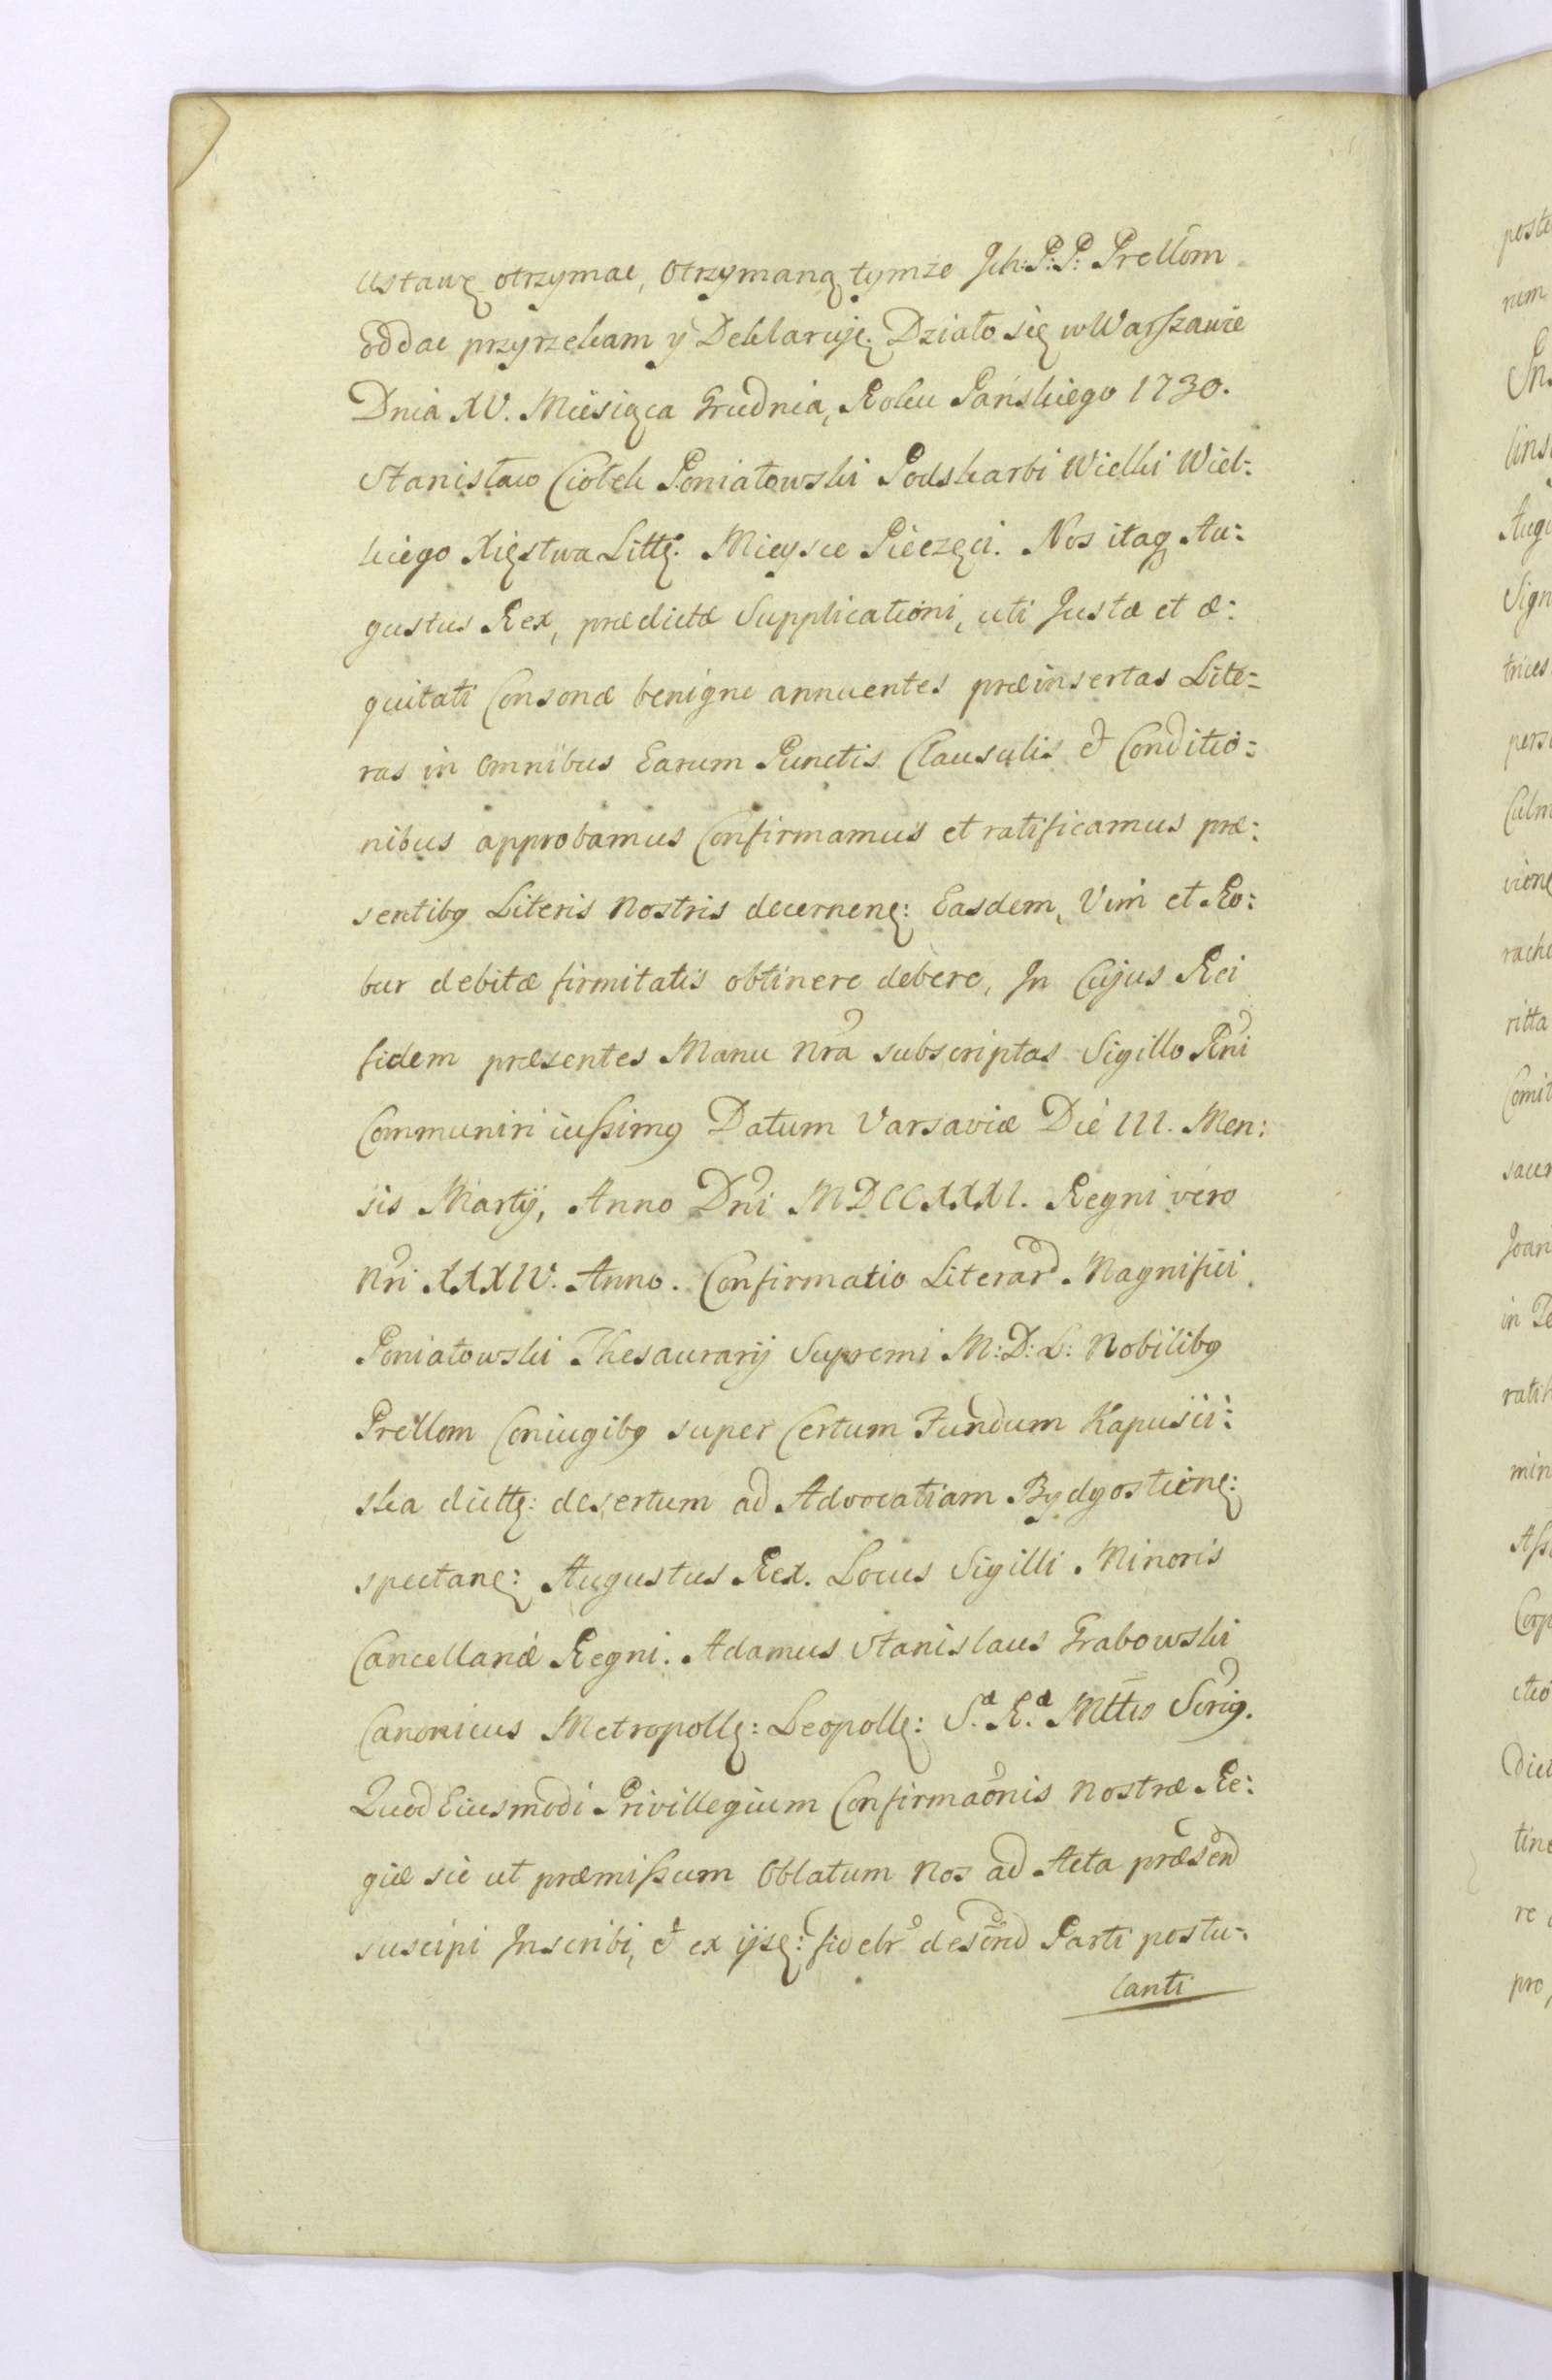 Ustawę otrzymac, Otrzymaną tymże Jch: P: P: Prellom
oddac przyrzekam y Deklaruję. Działo się w Warszawie
Dnia XV. Miesiąca Grudnia, Roku Pańskiego 1730.
Stanisław Ciołek Poniatowski Podskarbi Wielki Wiel:
kiego Xięstwa Littę. Mieysce Pieczęci. Nos itaq Au:
gustus Rex, prædictæ Supplicationi, uti Justæ et æ:
quitati Consonæ benigne annuentes præinsertas Lite=
ras in omnibus Earum Punctis Clausulis et Conditio=
nibus approbamus Confirmamus et ratificamus præ:
sentibq Literis nostris decernenę: Easdem, Vim et Ro:
bur debitæ firmitatis obtinere debere, Jn Cujus Rei
fidem præsentes Manu nra subscriptas Sigillo Rni
Communiri iussimq Datum Varsaviæ Die III. Men:
sis Martij, Anno Dni MDCCXXXI. Regni vero
nri XXXIV. Anno. Confirmatio Literard Magnifici
Poniatowski Thesaurarij Supremi M: D: L: Nobilibq
Prellom Coniugibq super Certum Fundum Kapusci:
ska dictę: desertum ad Advocatiam Bydgostienę:
spectanę: Augustus Rex. Locus Sigilli Minoris
Cancellariæ Regni. Adamus Stanislaus Grabowski
Canonicus Metropollę: Leopollę: S.æ R.æ Mttis Scriq.
Quod Eiusmodi Privillegium Confirmaonis nostræ Re:
giæ sic ut præmissum Oblatum nos ad Acta præsend
suscipi Jnscribi, et ex ijsę: fidelr desend Parti postu-
lanti

poste
nem
Jn
lins
Augu
Sign
trices
perso
Culm
vione
rache
ritta
Comit
sacr
Joan
in Te
ratih
min
Ass
Corp
ctio
Dict
tine
re
pro